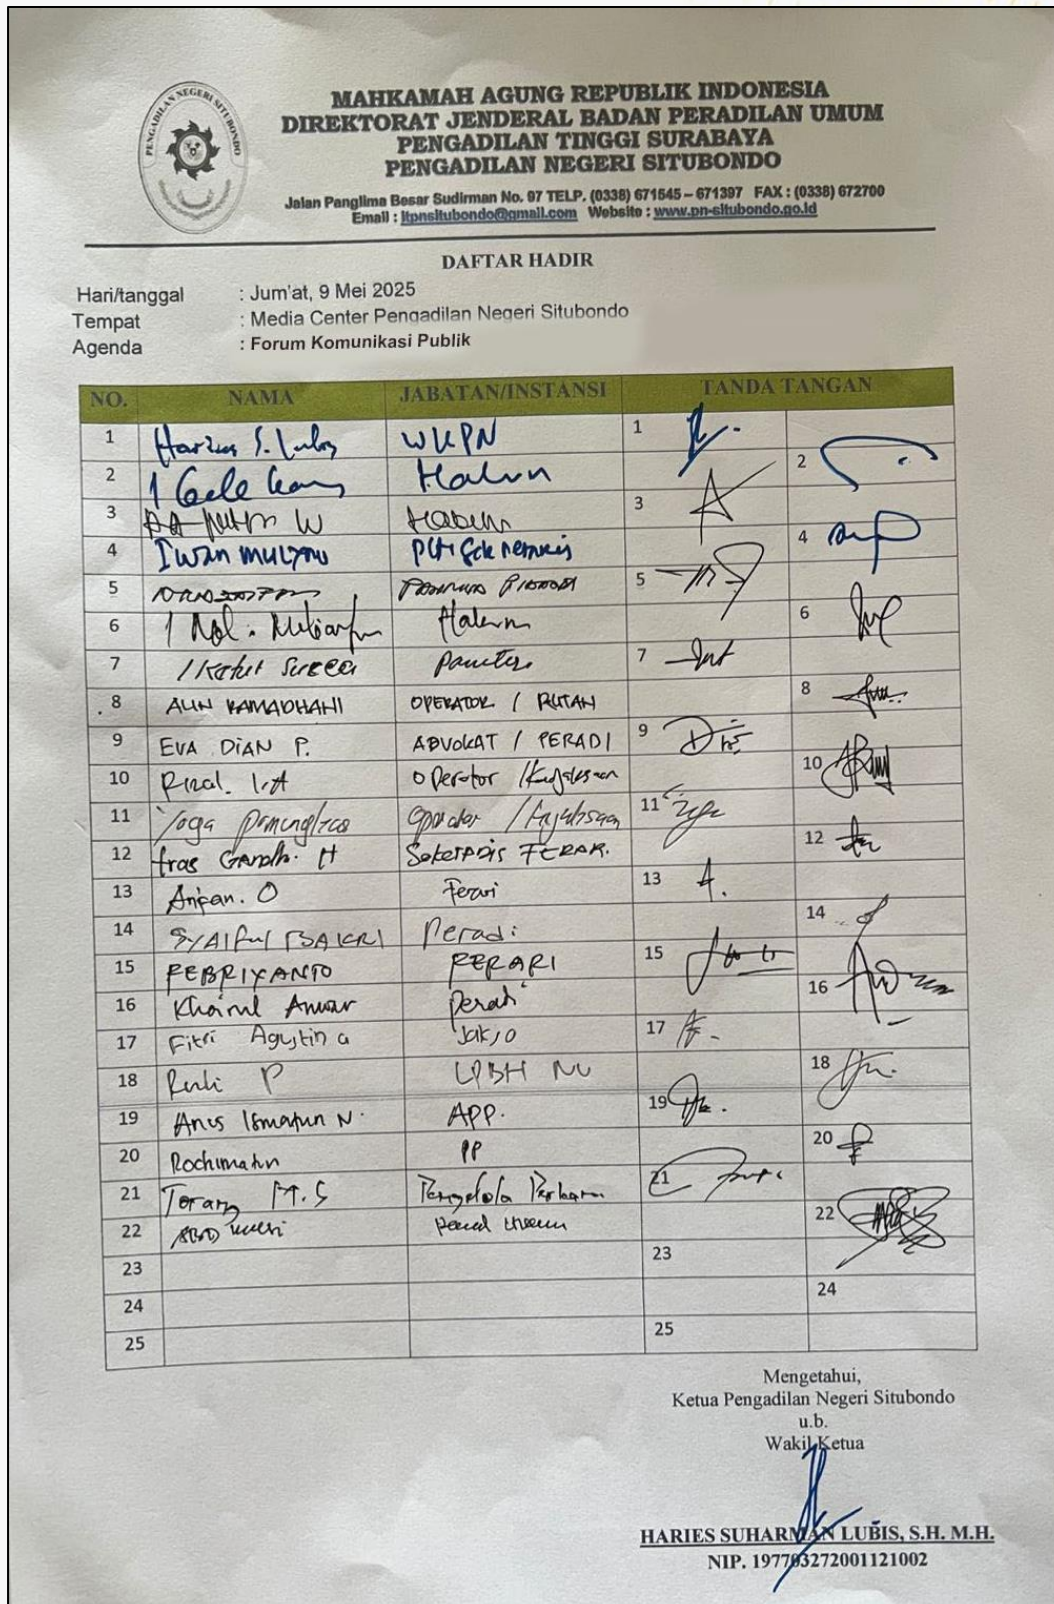 PENGADILAN NEGERI SITUBONDO
MAHKAMAH AGUNG REPUBLIK INDONESIA
DIREKTORAT JENDERAL BADAN PERADILAN UMUM
PENGADILAN TINGGI SURABAYA
PENGADILAN NEGERI SITUBONDO
Jalan Panglima Besar Sudirman No. 97 TELP. (0338) 671545 – 671397 FAX : (0338) 672700
Email : itpnsitubondo@gmail.com Website : www.pn-situbondo.go.id
DAFTAR HADIR
Hari/tanggal : Jum'at, 9 Mei 2025
Tempat : Media Center Pengadilan Negeri Situbondo
Agenda : Forum Komunikasi Publik
NO. NAMA JABATAN/INSTANSI TANDA TANGAN
1 Haries S. Lubis WKPN 1
2 Hakim 2
3 Hakim 3
4 Iwan Mulyono 4
5 5
6 Hakim 6
7 I Ketut Panitera 7
8 ALIN RAMADHANI OPERATOR / RUTAN 8
9 EVA DIAN P. ADVOKAT / PERADI 9
10 Rizal. Operator / Kejaksaan 10
11 Yoga Operator / Kejaksaan 11
12 12
13 Ferari 13
14 SYAIFUL BAKRI Peradi 14
15 FEBRIYANTO FERARI 15
16 Khoirul Anwar Peradi 16
17 Fitri Agustina 17
18 P LPBH NU 18
19 Anis Ismatun N. APP. 19
20 Rochimatun PP 20
21 Torang M.S Pengelola Perkara 21
22 22
23 23
24 24
25 25
Mengetahui,
Ketua Pengadilan Negeri Situbondo
u.b.
Wakil Ketua
HARIES SUHARMAN LUBIS, S.H. M.H.
NIP. 197703272001121002